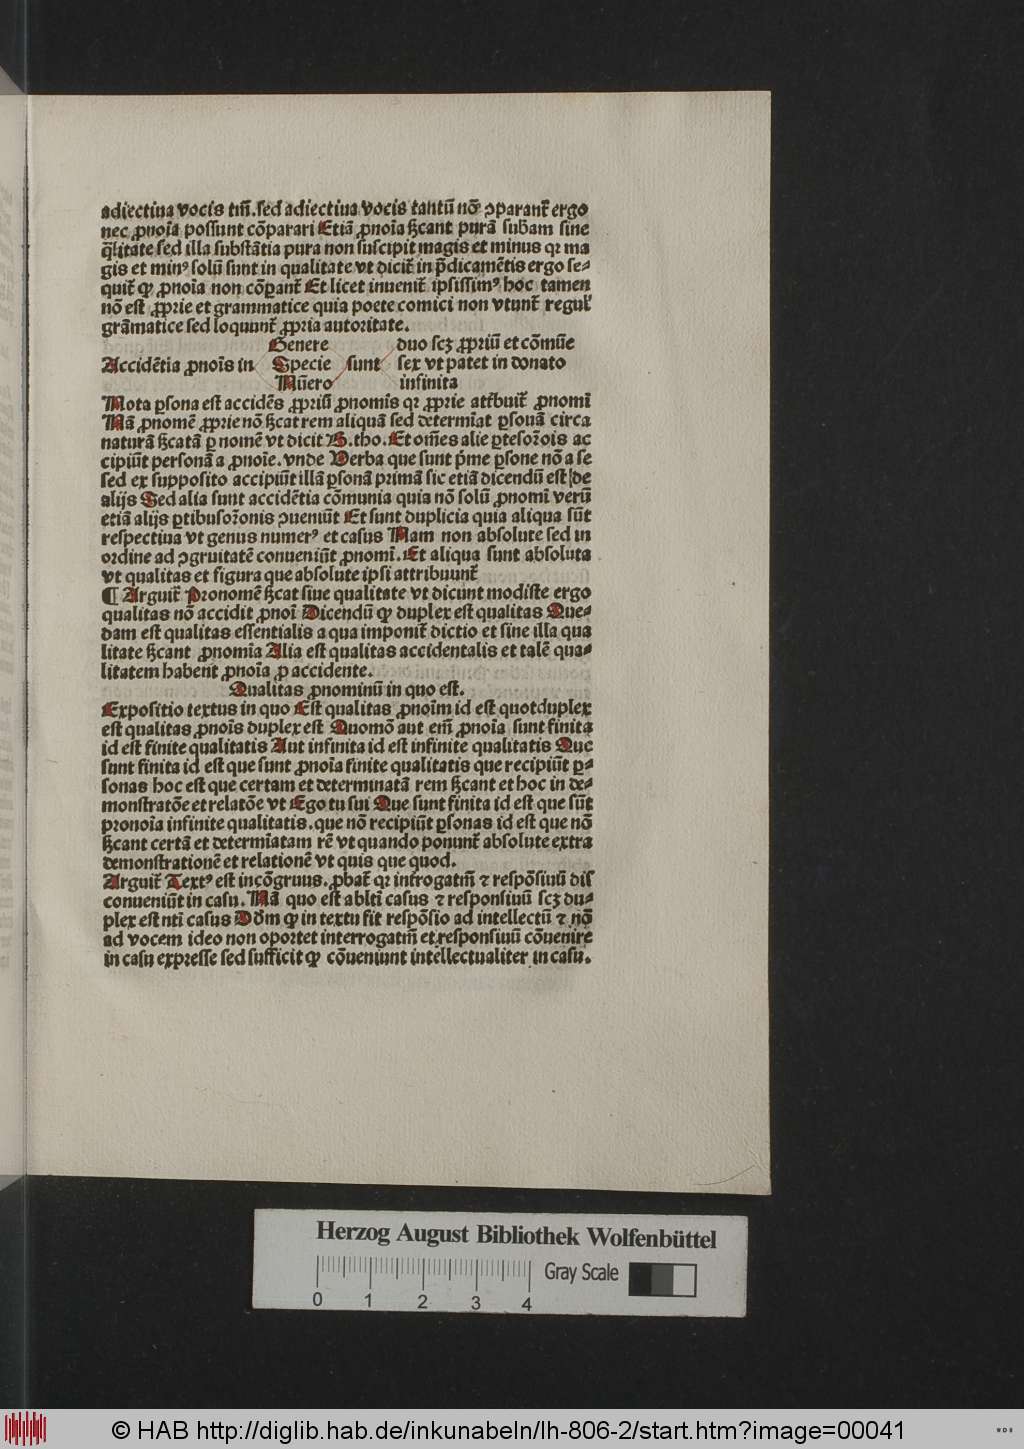 adiectiua vocis tm̄. sed adiectiua vocis tantū nō ↄparant᷑ ergo
nec ꝓnoīa possunt cōparari Etiā ꝓnoīa ẜcant purā subam sine
q̄litate sed illa substātia pura non suscipit magis et minus qꝛ ma
gis et minꝰ solū sunt in qualitate vt dicit᷑ in p̄dicamētis ergo se⸗
quit᷑ ꝙ ꝓnoīa non cōꝑant᷑ Et licet inuenit᷑ ipsissimꝰ hoc tamen
nō est ꝓprie et grammatice quia poete comici non vtunt᷑ regul᷑
grāmatice sed loquunt᷑ ꝓpria autoritate.
Genere duo scꝫ ꝓpriū et cōmūe
Accidētia ꝓnoīs in Specie sunt sex vt patet in donato
Nūero infinita
Nota ꝑsona est accidēs ꝓpriū ꝓnomīs qꝛ ꝓprie att᷑buit᷑ ꝓnomī
Nā ꝓnomē ꝓprie nō ẜcat rem aliquā sed determīat ꝑsonā circa
naturā ẜcatā ꝑ nomē vt dicit B. tho. Et om̄es alie ꝑtes oꝛ̄ois ac
cipiūt personā a ꝓnoīe. vnde Verba que sunt p͛me ꝑsone nō a se
sed ex supposito accipiūt illā ꝑsonā primā sic etiā dicendū est |de
alijs Sed alia sunt accidētia cōmunia quia nō solū ꝓnomī verū
etiā alijs ꝑtibus oꝛ̄onis ↄueniūt Et sunt duplicia quia aliqua sūt
respectiua vt genus numerꝰ et casus Nam non absolute sed in
ordine ad ↄgruitatē conueniūt ꝓnomī. Et aliqua sunt absoluta
vt qualitas et figura que absolute ipsi attribuunt᷑
¶ Arguit᷑ Pronomē ẜcat siue qualitate vt dicunt modiste ergo
qualitas nō accidit ꝓnoī Dicendū ꝙ duplex est qualitas Que⸗
dam est qualitas essentialis a qua imponit᷑ dictio et sine illa qua
litate ẜcant ꝓnomīa Alia est qualitas accidentalis et talē qua⸗
litatem habent ꝓnoīa ꝑ accidente.
Qualitas ꝓnominū in quo est.
Expositio textus in quo Est qualitas ꝓnoīm id est quotduplex
est qualitas ꝓnoīs duplex est Quomō aut em̄ ꝓnoīa sunt finita
id est finite qualitatis Aut infinita id est infinite qualitatis Que
sunt finita id est que sunt ꝓnoīa finite qualitatis que recipiūt ꝑ⸗
sonas hoc est que certam et determinatā rem ẜcant et hoc in de⸗
monstratōe et relatōe vt Ego tu sui Que sunt finita id est que sūt
pronoīa infinite qualitatis. que nō recipiūt ꝑsonas id est que nō
ẜcant certā et determīatam rē vt quando ponunt᷑ absolute extra
demonstrationē et relationē vt quis que quod.
Arguit᷑ Textꝰ est incōgruus. ꝓbat᷑ qꝛ int᷑rogatm̄ ⁊ respōsiuū dn̄t
conueniūt in casu. Nā quo est ablti casus ⁊ responsiuū scꝫ du⸗
plex est nti casus Dōm ꝙ in textu fit respōsio ad intellectū ⁊ nō
ad vocem ideo non oportet interrogatm̄ et responsiuū cōuenire
in casu expresse sed sufficit ꝙ cōueniunt intellectualiter in casu.
Herzog August Bibliothek Wolfenbüttel
Gray Scale
0 1 2 3 4
© HAB http://diglib.hab.de/inkunabeln/lh-806-2/start.htm?image=00041